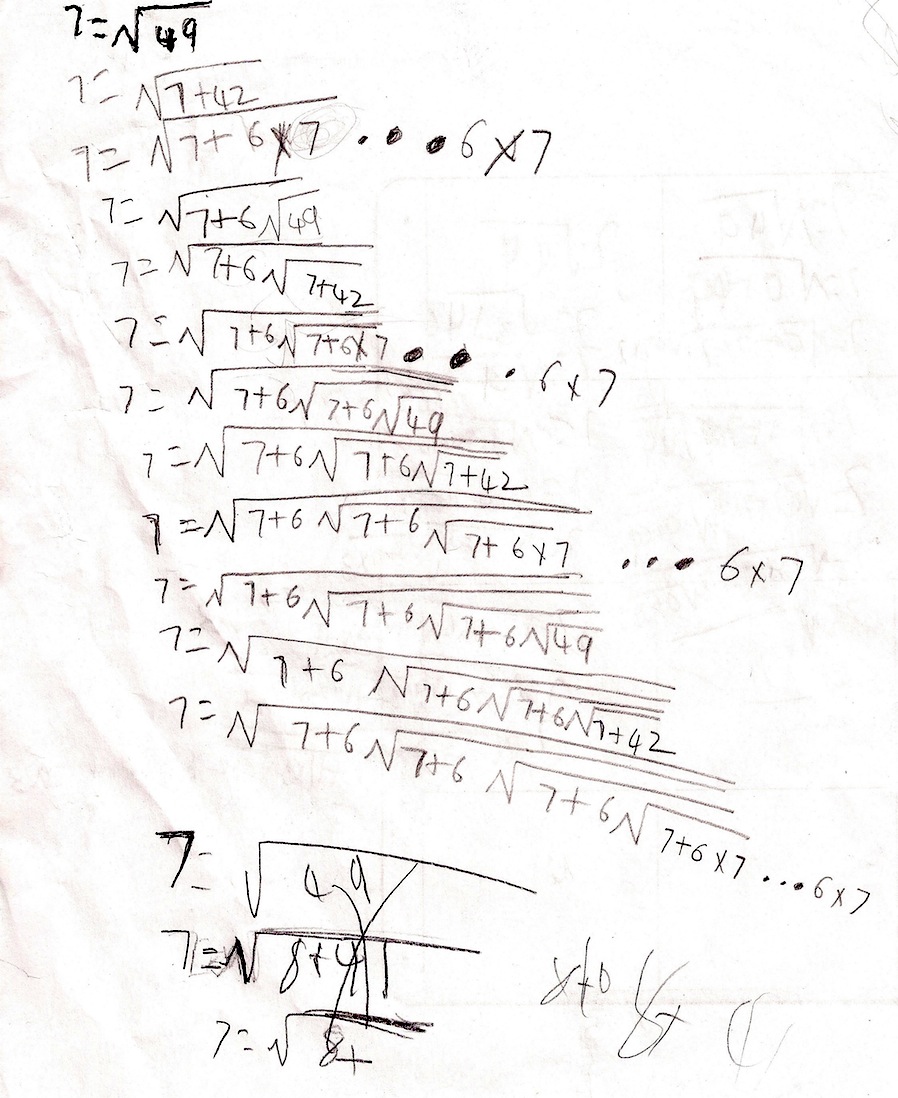 7=√49
7=√7+42
7=√7+6×7 ... 6×7
7=√7+6√49
7=√7+6√7+42
7=√7+6√7+6×7 ... 6×7
7=√7+6√7+6√49
7=√7+6√7+6√7+42
7=√7+6√7+6√7+6×7 ... 6×7
7=√7+6√7+6√7+6√49
7=√7+6√7+6√7+6√7+42
7=√7+6√7+6√7+6√7+6×7 ... 6×7
7=√49
7=√8+41
7=√8+